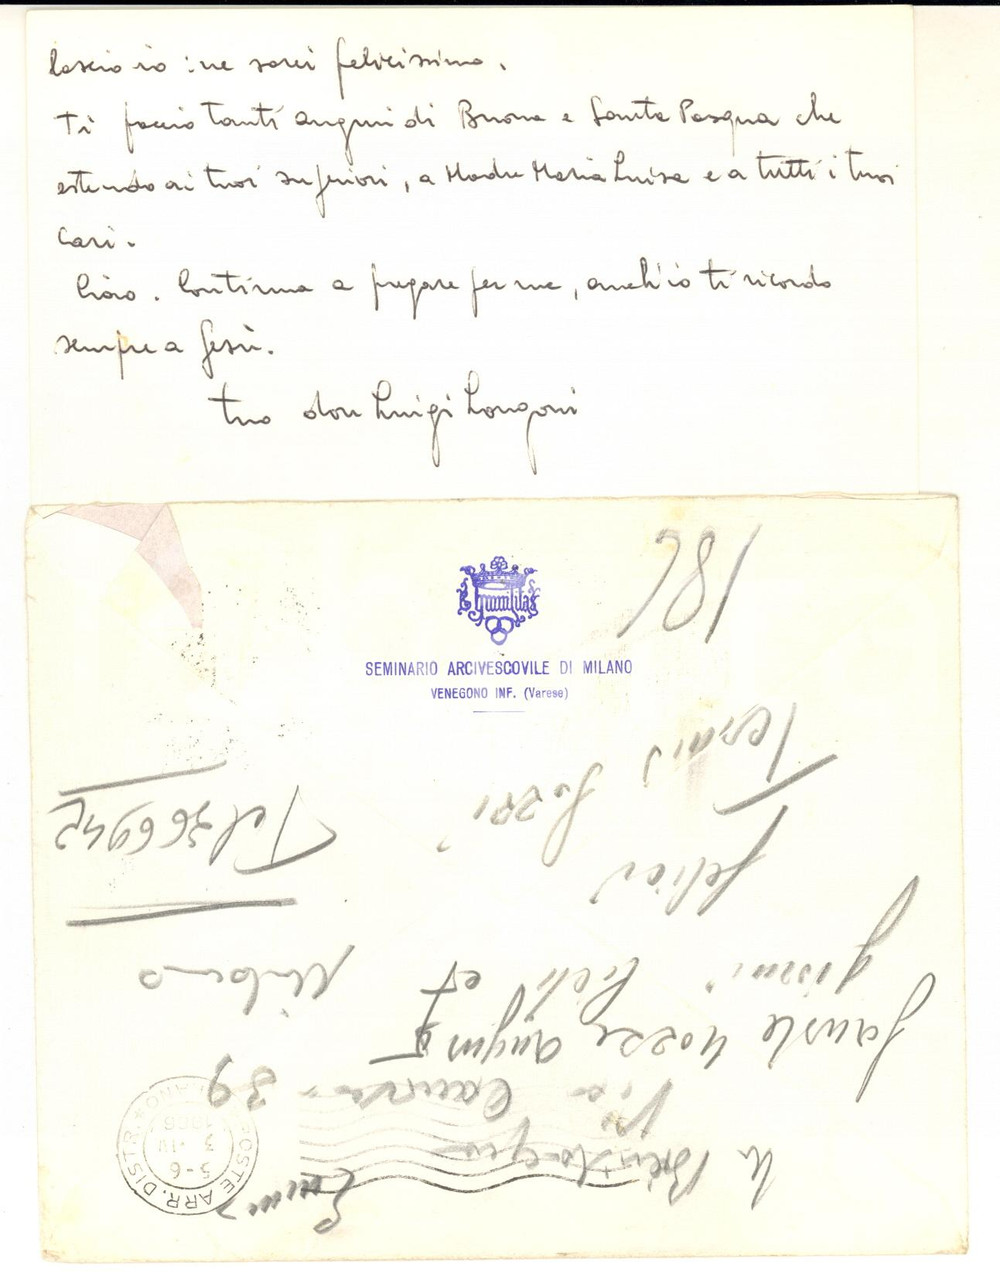 lascio io: ne sarei felicissimo.
Ti faccio tanti auguri di Buona e Santa Pasqua che
estendo ai tuoi superiori, a Madre Maria Luisa e a tutti i tuoi
cari.
Ciao. Continua a pregare per me, anch'io ti ricordo
sempre a Gesù.
tuo don Luigi Longoni
186
humilitas
SEMINARIO ARCIVESCOVILE DI MILANO
VENEGONO INF. (Varese)
Tel 366942
felici
Milano
giorni
Fauste nozze auguri
Via 39
POSTE ARR. DISTR.
5-6
3 IV
1966